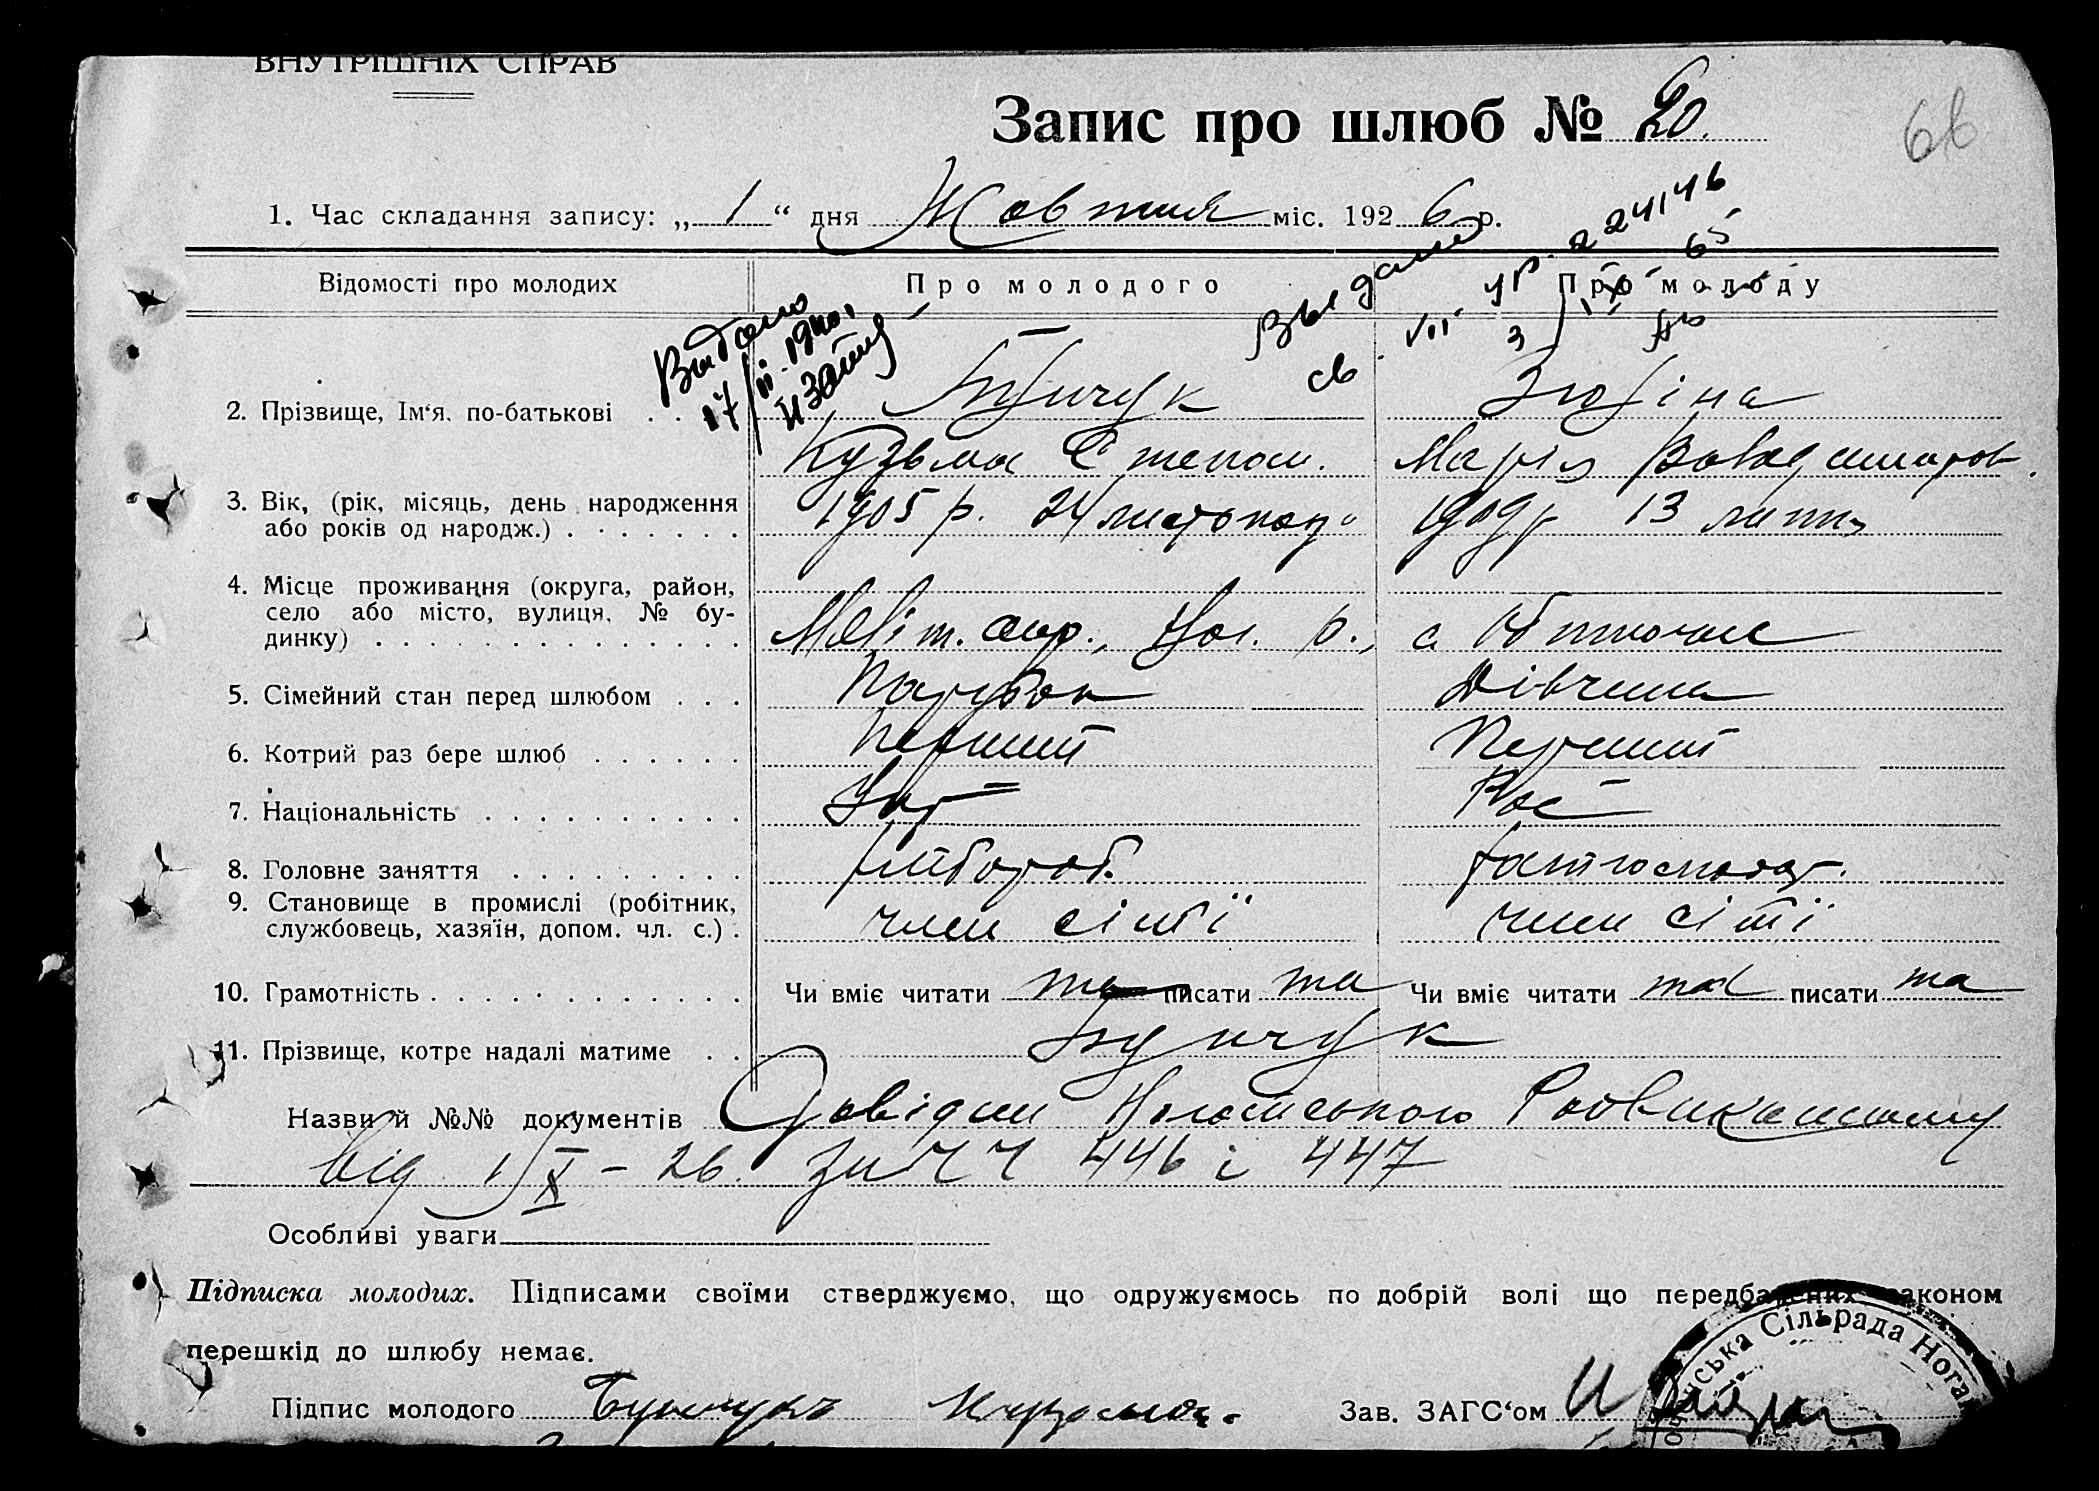 ВНУТРІШНІХ СПРАВ
Запис про шлюб № 20.
66
1. Час складання запису: „ 1 “ дня Жовтня міс. 1926 р.
Відомості про молодих Про молодого Про молоду
Выдано
17/II-1940
224146
2. Прізвище, Ім‘я, по-батькові . . Бунчук Зюбіна
Кузьма Степан. Марія
3. Вік, (рік, місяць, день народження 1905 р. 24 листопад 1909 р 13 липня
або років од народж.) . . . . . . .
4. Місце проживання (округа, район,
село або місто, вулиця, № бу-
динку) . . . . . . . . . . . . . . Меліт. окр., Ног. р., с.
5. Сімейний стан перед шлюбом . . . Парубок Дівчина
6. Котрий раз бере шлюб . . . . . . Перший Перший
7. Національність . . . . . . . . . . Укр Рос
8. Головне заняття . . . . . . . . . хлібороб.
9. Становище в промислі (робітник,
службовець, хазяїн, допом. чл. с.) . член сім'ї член сім'ї
10. Грамотність . . . . . . . . . . . . Чи вміє читати та писати та Чи вміє читати так писати та
11. Прізвище, котре надалі матиме . . Бунчук
Назви й №№ документів Довідки Ногайського Райвиконкому
від 1/X - 26. за ЧЧ 446 і 447
Особливі уваги
Підписка молодих. Підписами своїми стверджуємо, що одружуємось по добрій волі що передбачених законом
перешкід до шлюбу немає.
Підпис молодого Бунчукъ Кузьма Зав. ЗАГС‘ом
ська Сільрада Нога